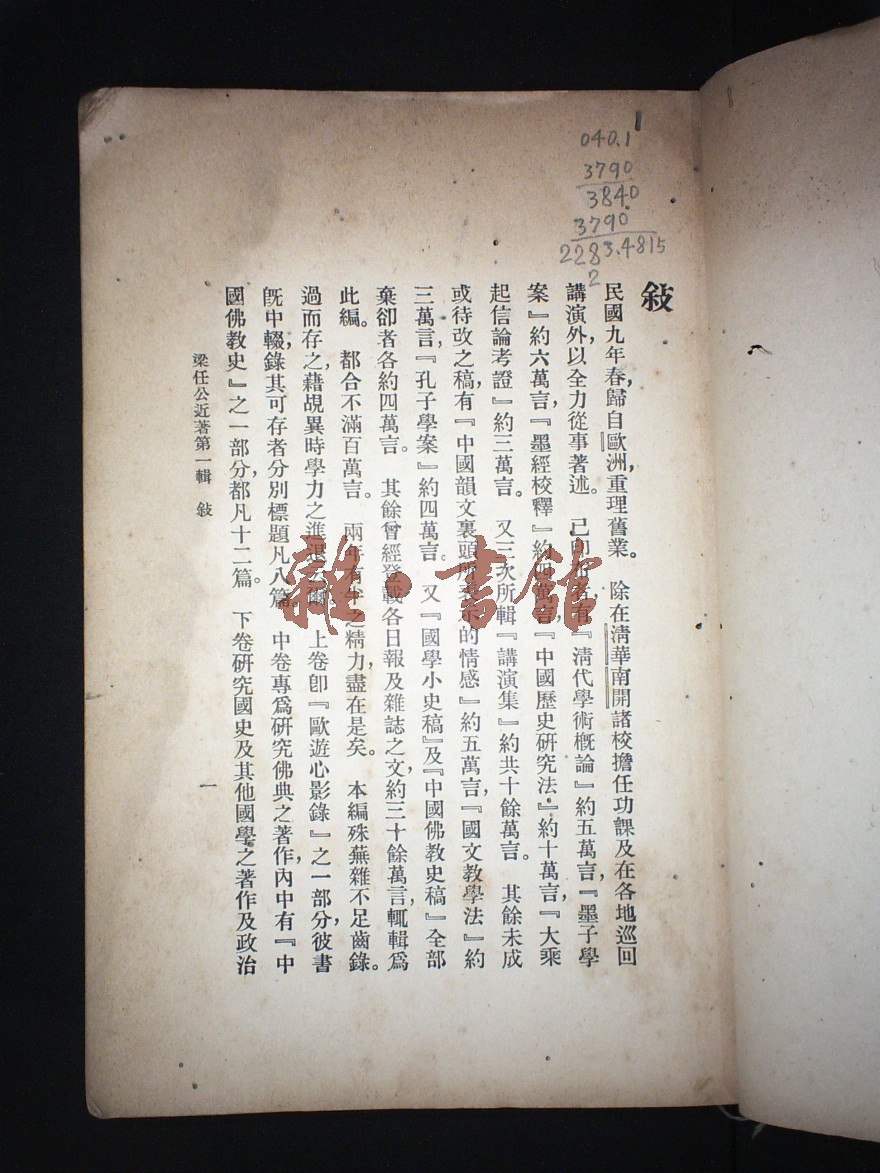 040.1
3790
3840
3790
2283.4815
2
敍
民國九年春，歸自歐洲，重理舊業。除在清華南開諸校擔任功課及在各地巡回
講演外，以全力從事著述。已印布者，有『清代學術概論』約五萬言，『墨子學
案』約六萬言，『墨經校釋』約四萬言，『中國歷史研究法』約十萬言，『大乘
起信論考證』約三萬言。又三次所輯『講演集』約共十餘萬言。其餘未成
或待改之稿，有『中國韻文裏頭所表示的情感』約五萬言，『國文教學法』約
三萬言，『孔子學案』約四萬言。又『國學小史稿』及『中國佛教史稿』全部
棄卻者各約四萬言。其餘曾經登載各日報及雜誌之文，約三十餘萬言，輒輯爲
此編。都合不滿百萬言。兩年有半之精力，盡在是矣。本編殊蕪雜不足齒錄。
過而存之，藉覘異時學力之進退云爾。上卷卽『歐遊心影錄』之一部分，彼書
旣中輟，錄其可存者分別標題凡八篇。中卷專爲研究佛典之著作，內中有『中
國佛教史』之一部分，都凡十二篇。下卷研究國史及其他國學之著作及政治
梁任公近著第一輯 敍
一
雜·書館